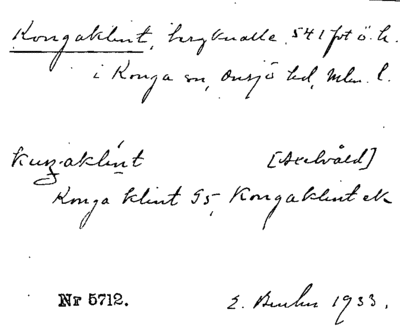 Kongaklint, bergknalle 541 fot ö. h.
i Konga sn, Onsjö hd, Mlm. l.
[Axelvåld]
Konga klint G5, Kongaklint ek
Nr 5712. E. 1933.